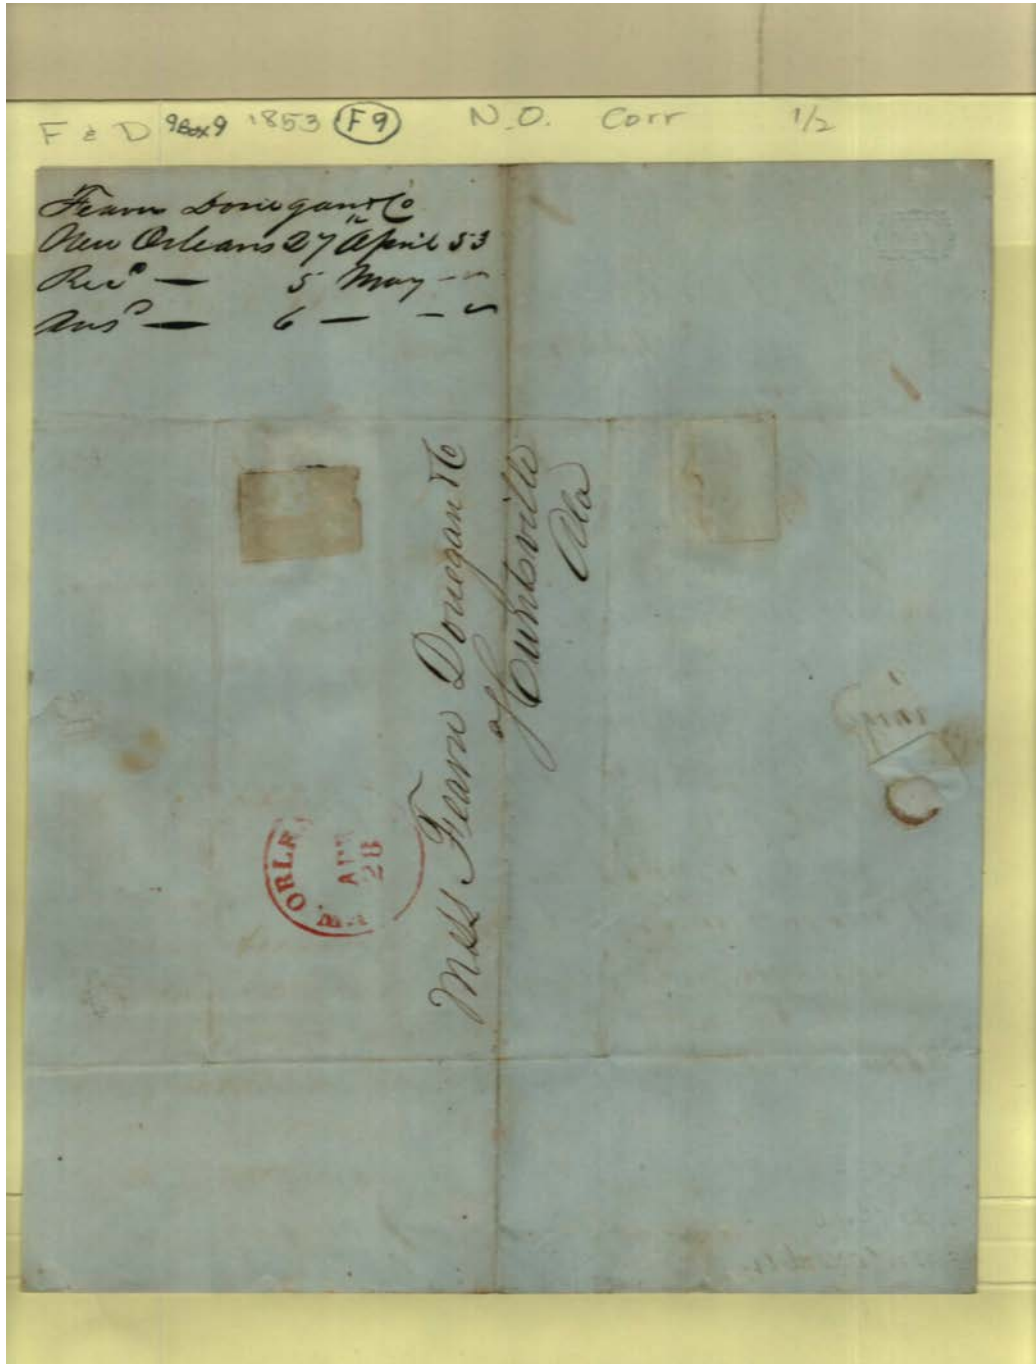 F & D 9Box9 1853 F9 N.O. Corr 1/2
Fearn Donegan & Co
New Orleans 27th April 53
Recd — 5 May - "
Ansd — 6 — - "
Mess Fearn Donegan & Co
Huntsville
Ala
ORLE
28